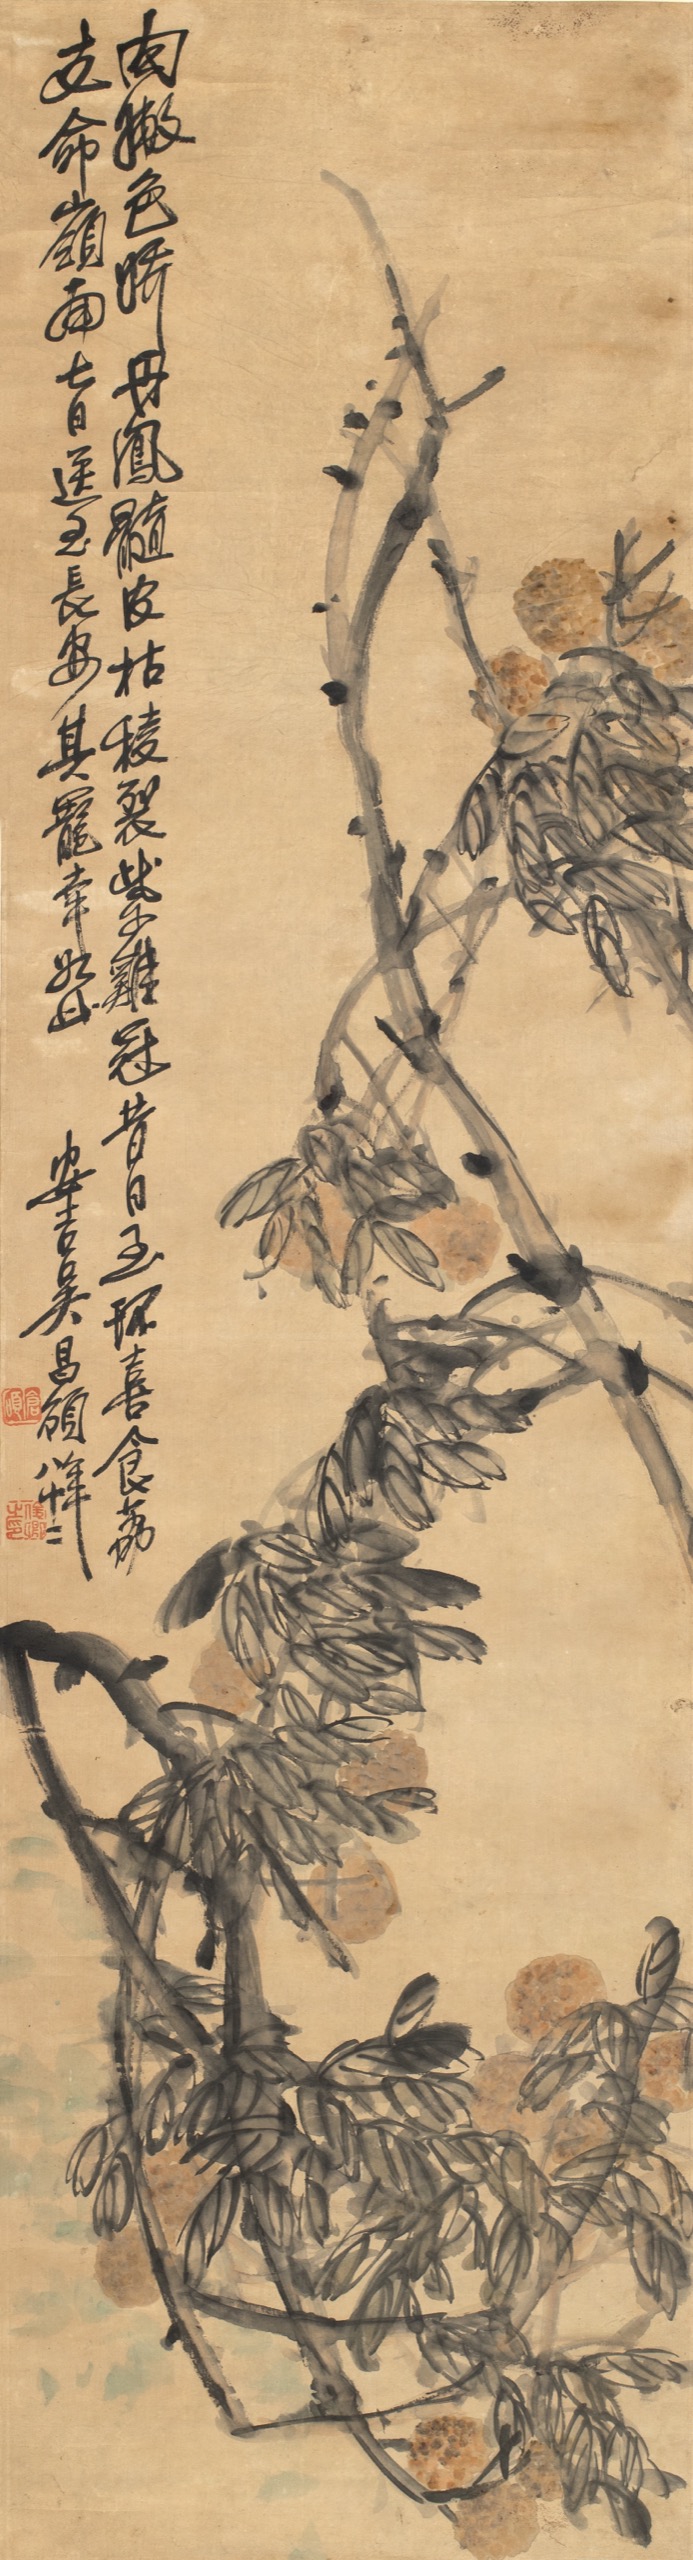 肉撒色晞丹鳳髓皮枯稜裂紫雞冠昔日玉環喜食荔
支命嶺南七日送至長安其寵幸如此
安吉吳昌碩年八十二
倉碩